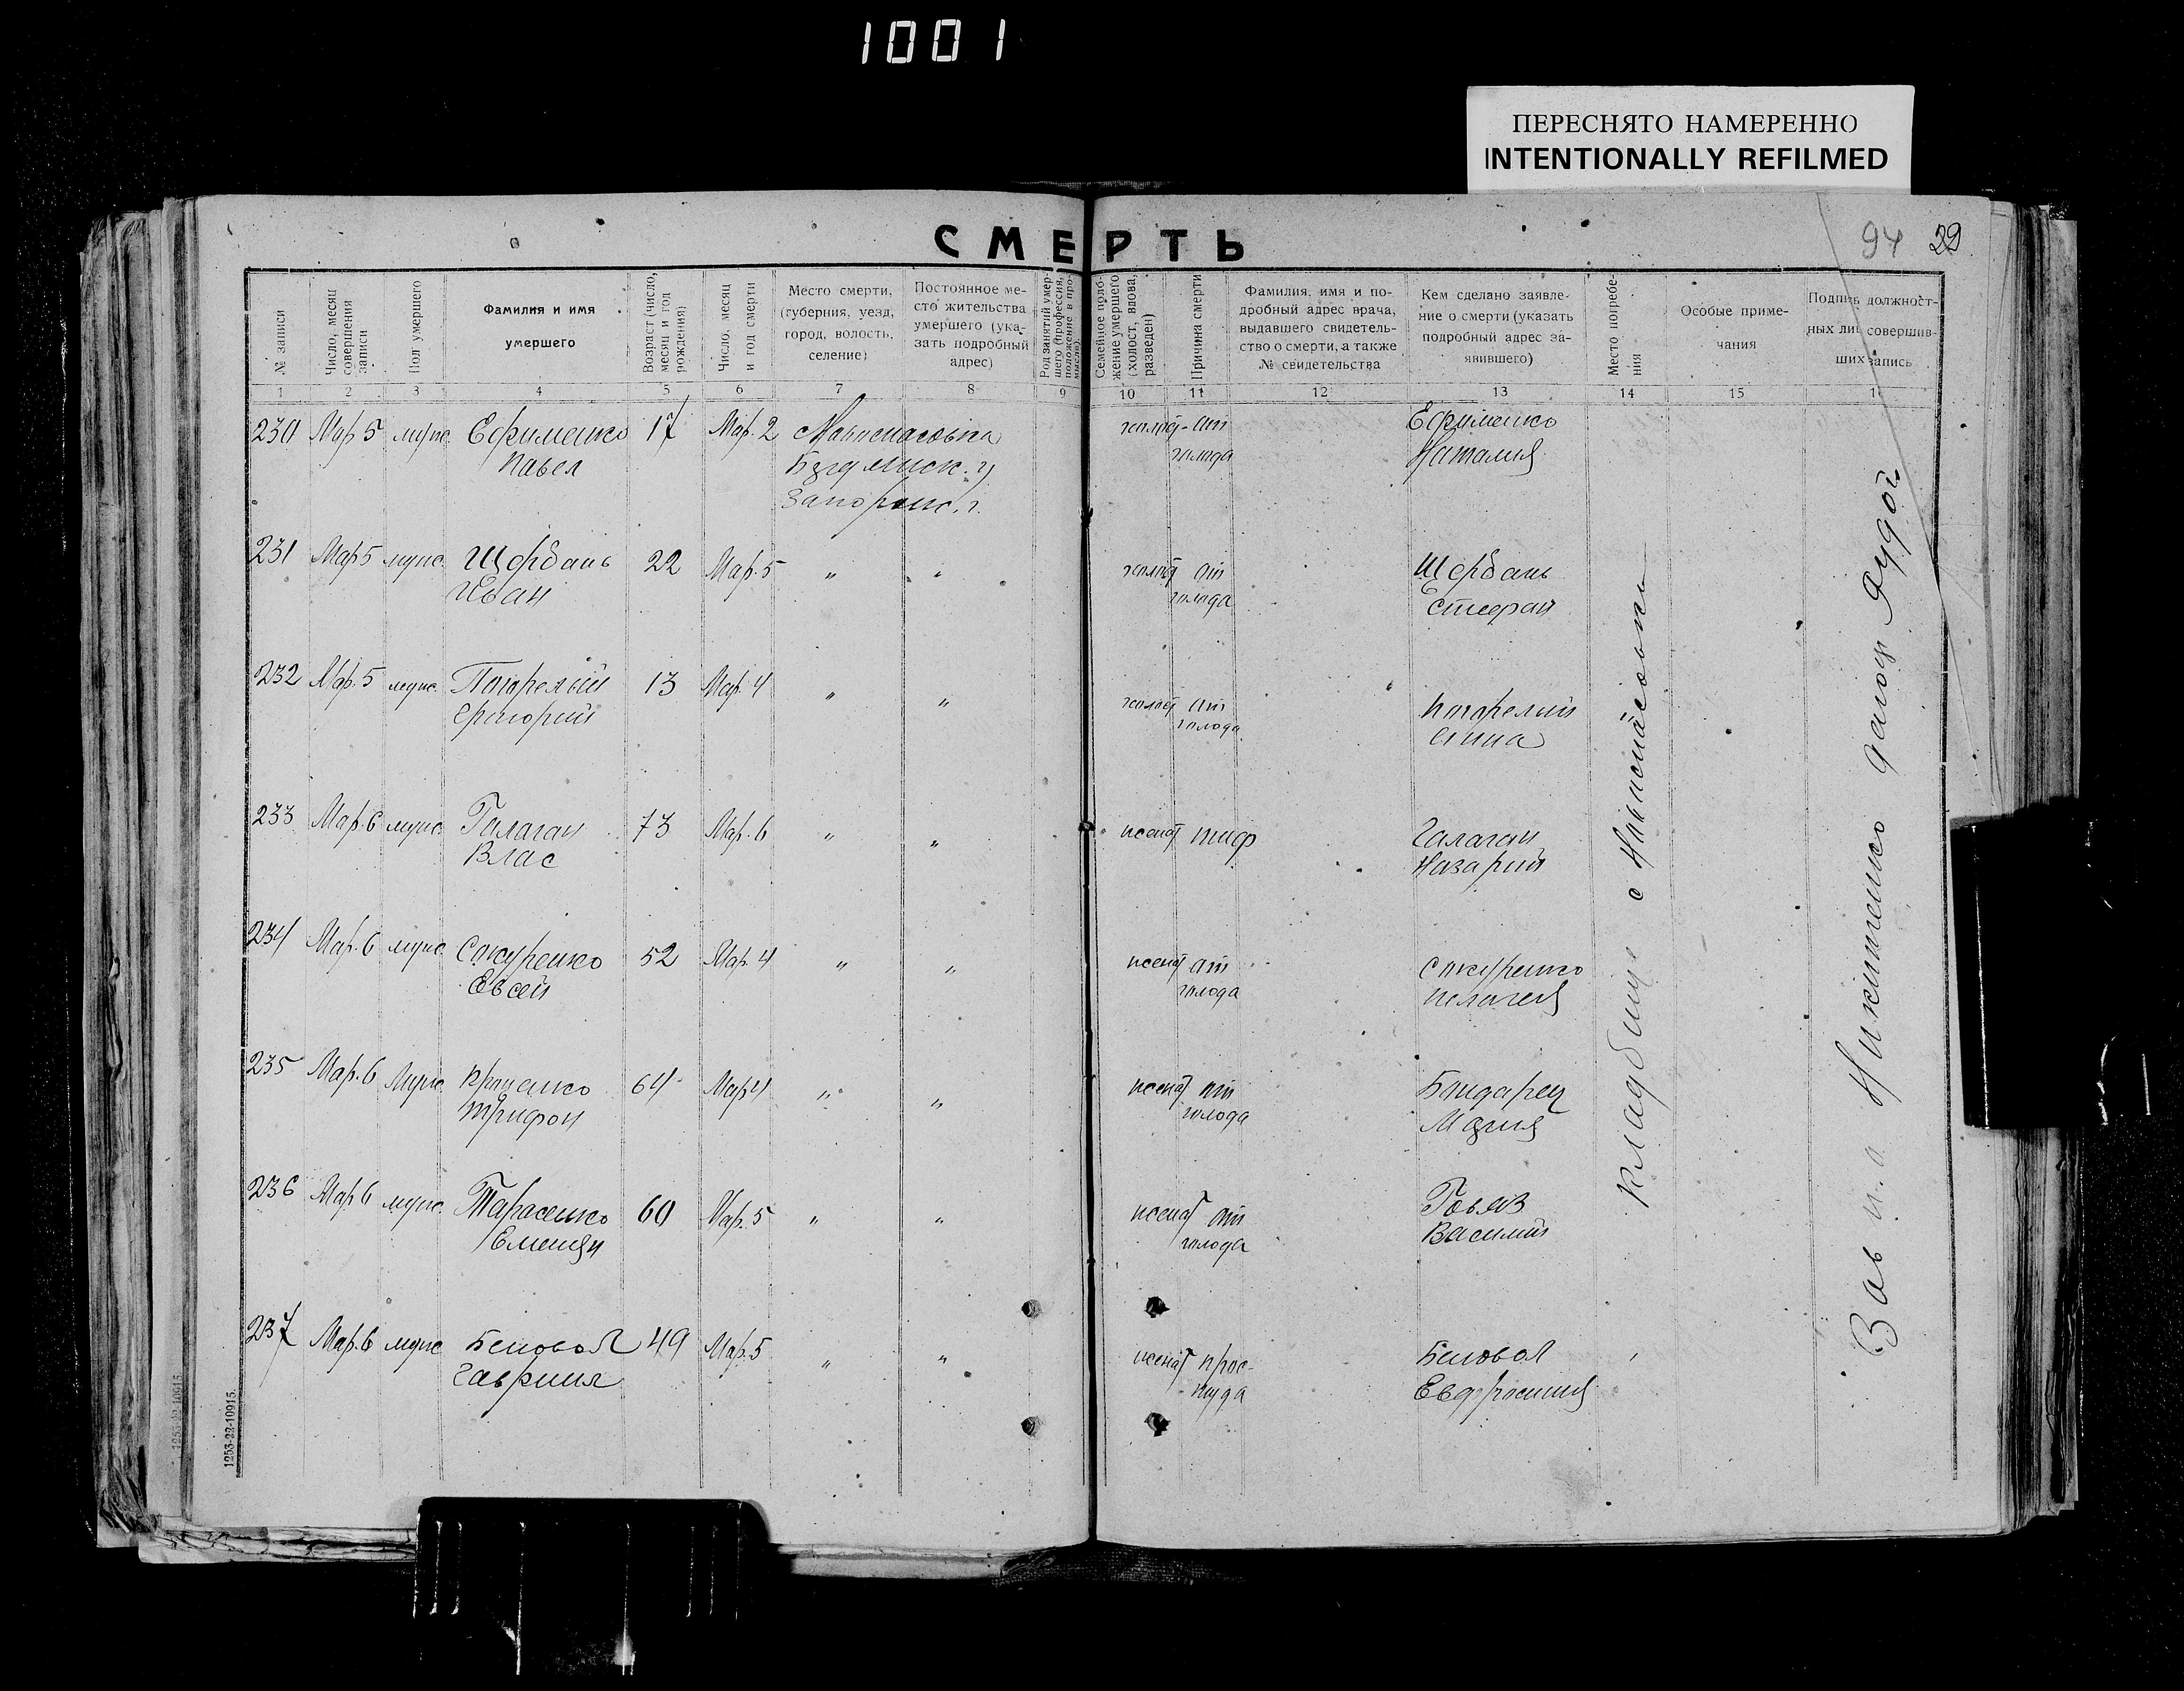 1001
ПЕРЕСНЯТО НАМЕРЕННО
INTENTIONALLY REFILMED
СМЕРТЬ
94 29
№ записи
Число, месяц совершения записи
Пол умершего
Фамилия и имя умершего
Возраст (число, месяц и год рождения)
Число, месяц и год смерти
Место смерти, (губерния, уезд, город, волость, селение)
Постоянное место жительства умершего (указать подробный адрес)
Род занятий умершего (профессия, положение в промысле)
Семейное положение умершего (холост, вдова, разведен)
Причина смерти
Фамилия, имя и подробный адрес врача, выдавшего свидетельство о смерти, а также № свидетельства
Кем сделано заявление о смерти (указать подробный адрес заявившего)
Место погребения
Особые примечания
Подпись должностных лиц совершивших запись
1 2 3 4 5 6 7 8 9 10 11 12 13 14 15 1
230 Мар 5 муж. Ефименко 17 Мар. 2 холост от Ефименко
Павел голода Наталия
Запорожс. г.
231 Мар 5 муж. Щербань 22 Мар. 5 " " холост от Щербань
Иван голода Стефан
232 Мар. 5 муж. Погорелый 13 Мар. 4 " " холост от Погорелый
Григорий голода Анна
233 Мар. 6 муж. Галаган 73 Мар. 6 " " женат тиф Галаган
Влас Назарий
234 Мар. 6 муж. Сокуренко 52 Мар. 4 " " женат от Сокуренко
Евсей голода Пелагея
235 Мар. 6 Муж. Проценко 64 Мар 4 " " женат от Бондарец
Трифон голода Мария
236 Мар 6 муж. Тарасенко 60 Мар. 5 " " женат от Говяз
Емельян голода Василий
237 Мар. 6 муж Беловол 49 Мар. 5 " " женат прос-
Гавриил туда Беловол
Евфросиния
Кладбище с Новоспасовки
Зав п. о. Никитенко
1253-22-10915.
1253-22-10915.